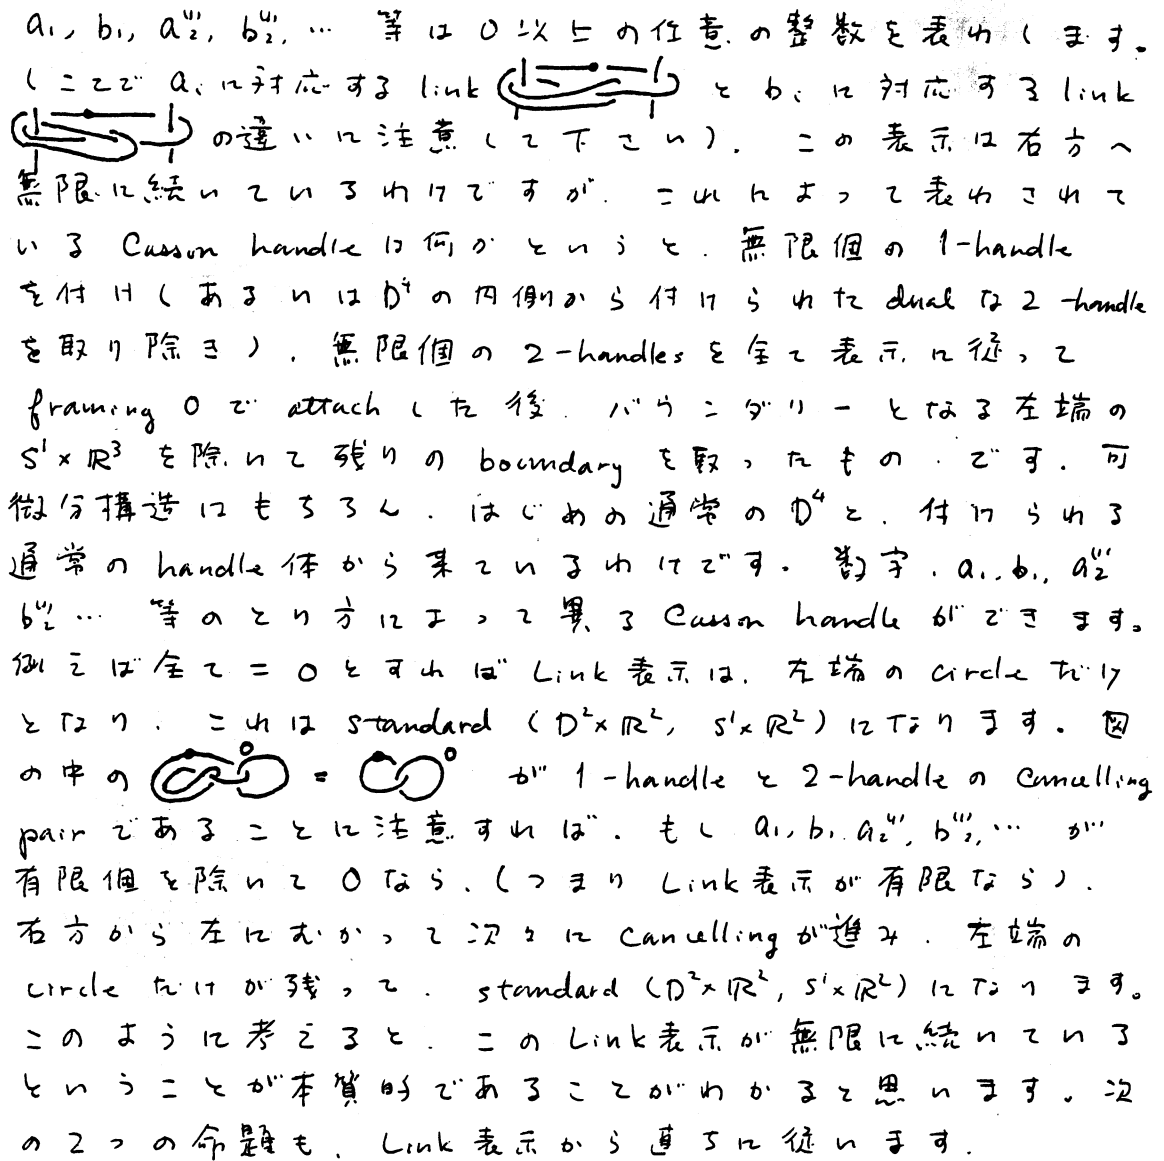 a₁, b₁, a₂''', b₂''', … 等は 0 以上の任意の整数を表わします。
(ここで aᵢ に対応する link と bᵢ に対応する link
の違いに注意して下さい). この表示は右方へ
無限に続いているわけですが. これによって表わされて
いる Casson handle は何かというと. 無限個の 1-handle
を付け(あるいは D⁴ の内側から付けられた dual な 2-handle
を取り除き). 無限個の 2-handles を全て表示に従って
framing 0 で attach した後. バウンダリーとなる左端の
S¹×ℝ³ を除いて残りの boundary を取ったもの. です. 可
微分構造はもちろん. はじめの通常の D⁴ と. 付けられる
通常の handle 体から来ているわけです。 数字. a₁, b₁, a₂'''
b₂''' … 等のとり方によって異る Casson handle ができます。
例えば全て = 0 とすれば Link 表示は. 左端の circle だけ
となり. これは standard (D²×ℝ², S¹×ℝ²) になります。 図
の中の 0 = 0 が 1-handle と 2-handle の cancelling
pair であることに注意すれば. もし a₁, b₁, a₂''', b₂''', … が
有限個を除いて 0 なら. (つまり Link 表示が有限なら).
右方から左にむかって次々に cancelling が進み. 左端の
circle だけが残って. standard (D²×ℝ², S¹×ℝ²) になります。
このように考えると. この Link 表示が無限に続いている
ということが本質的であることがわかると思います。 次
の 2 つの命題も. Link 表示から直ちに従います.